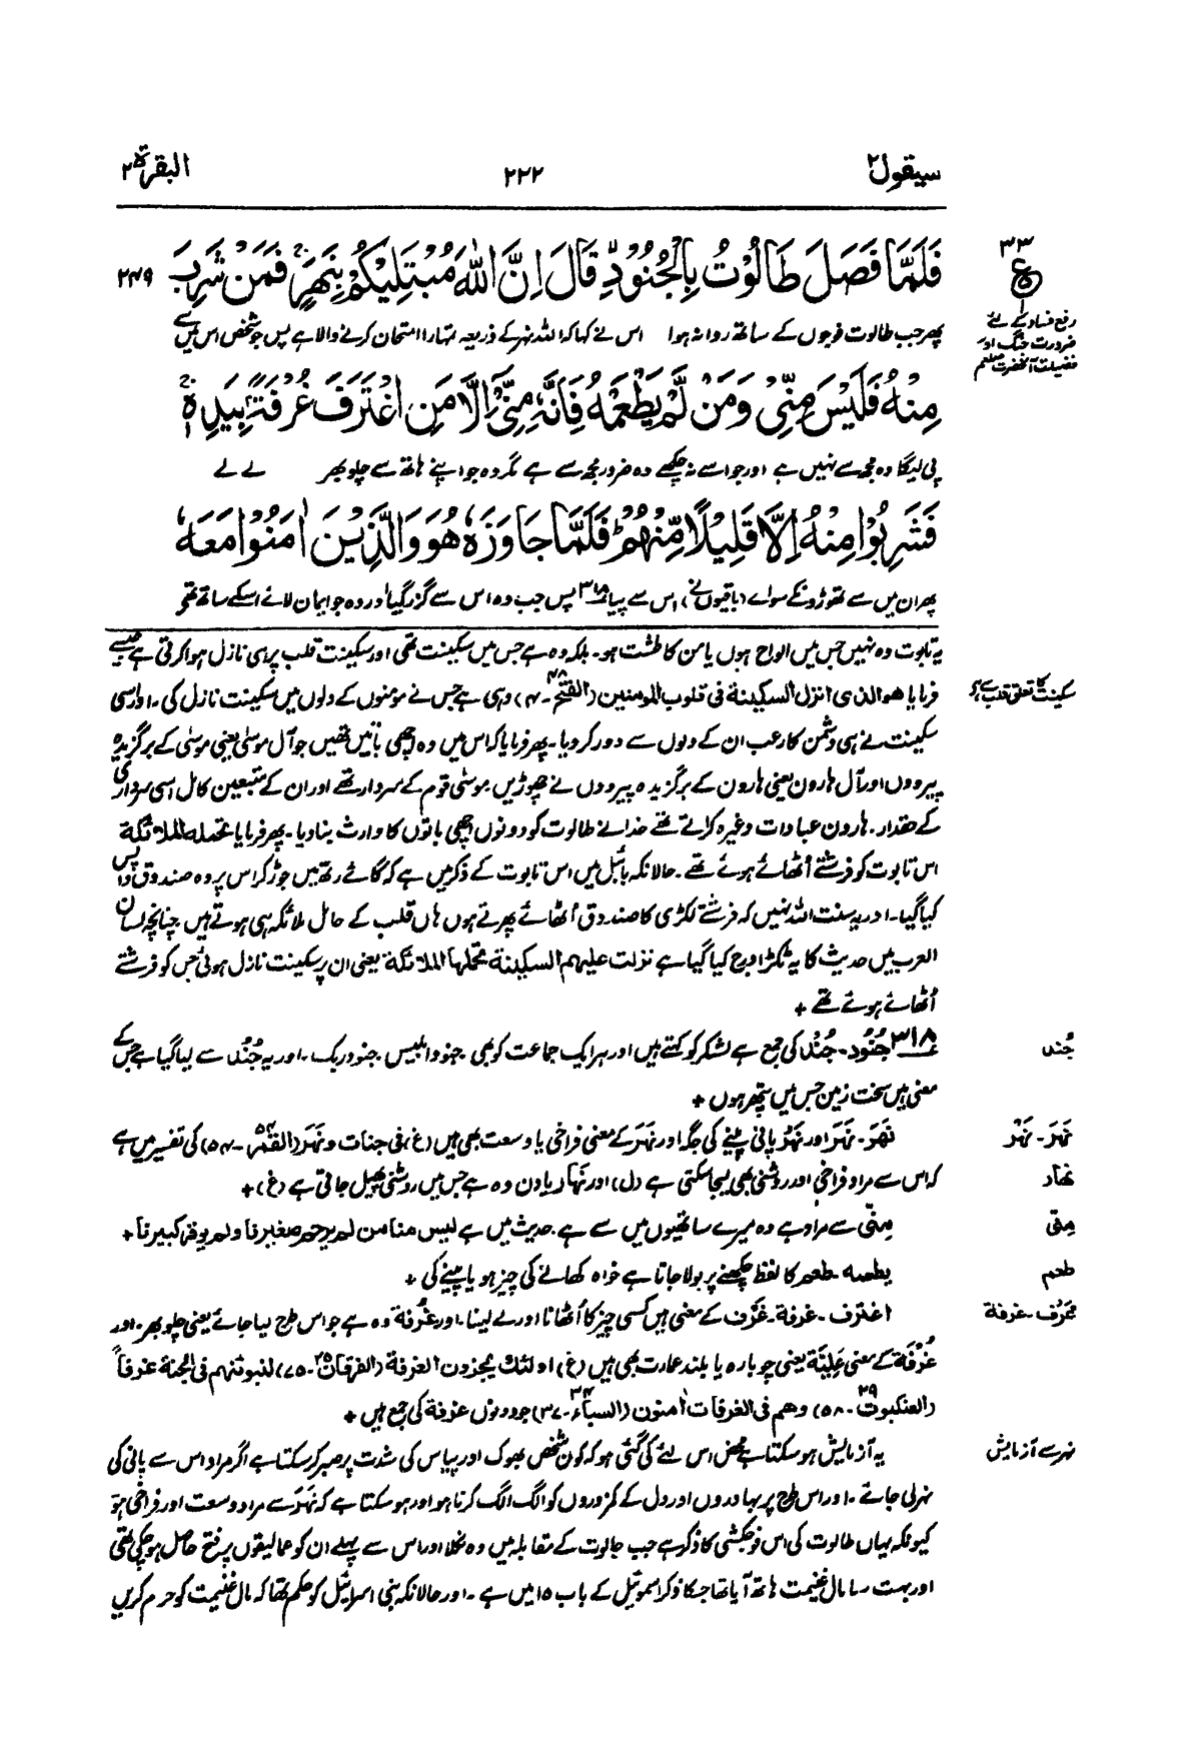 سیقول ۲
۲۲۲
البقرة ۲
۳۳
ع
رفع فساد کے لئے
ضرورت جنگ اور
فضیلت آنحضرت صلعم
فَلَمَّا فَصَلَ طَالُوْتُ بِالْجُنُوْدِ قَالَ اِنَّ اللّٰهَ مُبْتَلِيْكُمْ بِنَهَرٍ فَمَنْ شَرِبَ
۲۴۹
پھر جب طالوت فوجوں کے ساتھ روانہ ہوا اس نے کہا کہ اللہ نہر کے ذریعہ تمہارا امتحان کرنے والا ہے پس جو شخص اس میں سے
مِنْهُ فَلَيْسَ مِنِّيْ وَمَنْ لَّمْ يَطْعَمْهُ فَاِنَّهٗ مِنِّيْ اِلَّا مَنِ اغْتَرَفَ غُرْفَةًۢ بِيَدِهٖ
پی لیگا وہ مجھ سے نہیں ہے اور جو اسے نہ چکھے وہ ضرور مجھ سے ہے مگر وہ جو اپنے ہاتھ سے چلو بھر لے لے
فَشَرِبُوْا مِنْهُ اِلَّا قَلِيْلًا مِّنْهُمْ فَلَمَّا جَاوَزَهٗ هُوَ وَالَّذِيْنَ اٰمَنُوْا مَعَهٗ
پھر ان میں سے تھوڑونکے سوائے (باقیوں نے) اس سے پیا ۳۱۸ پس جب وہ اس سے گزر گیا اور وہ جو ایمان لائے اسکے ساتھ تھے
یہ تابوت وہ نہیں جس میں الواح ہوں یا من کا طشت ہو۔ بلکہ وہ ہے جس میں سکینت تھی اور سکینت قلب پر ہی نازل ہوا کرتی ہے جیسے
سکینت کا تعلق قلب سے ہے
فرمایا هو الذی انزل السکینة فی قلوب المومنین (الفتح ۴۸-۴) وہی ہے جس نے مومنوں کے دلوں میں سکینت نازل کی۔ اور اسی
سکینت نے ہی دشمن کا رعب ان کے دلوں سے دور کر دیا۔ پھر فرمایا کہ اس میں وہ اچھی باتیں تھیں جو آل موسیٰ یعنی موسیٰ کے برگزیدہ
پیرووں اور آل ہارون یعنی ہارون کے برگزیدہ پیرووں نے چھوڑیں۔ موسیٰ قوم کے سردار تھے اور ان کے متبعین کامل اسی سرداری
کے حقدار۔ ہارون عبادات وغیرہ کراتے تھے خدا نے طالوت کو دونوں اچھی باتوں کا وارث بنا دیا۔ پھر فرمایا تحمله الملائكة
اس تابوت کو فرشتے اُٹھائے ہوئے تھے۔ حالانکہ بائبل میں اس تابوت کے ذکر میں ہے کہ گائے رتھ میں جوڑ کر اس پر وہ صندوق واپس
کیا گیا۔ اور یہ سنت اللہ نہیں کہ فرشتے لکڑی کا صندوق اُٹھائے پھرتے ہوں ہاں قلب کے حامل ملائکہ ہی ہوتے ہیں چنانچہ لسان
العرب میں حدیث کا یہ ٹکڑا درج کیا گیا ہے نزلت علیهم السکینة تحملها الملائكة یعنی ان پر سکینت نازل ہوئی جس کو فرشتے
اُٹھائے ہوئے تھے +
جُند
۳۱۸ جُنُود۔ جُنْد کی جمع ہے لشکر کو کہتے ہیں اور ہر ایک جماعت کو بھی جنود ابلیس۔ جنود ربک۔ اور یہ جُنْد سے لیا گیا ہے جس کے
معنی ہیں سخت زمین جس میں پتھر ہوں +
نَهَر۔ نَهْر
نَهَر۔ نَهَر اور نَهْر پانی بہنے کی جگہ اور نَهَر کے معنی فراخی یا وسعت بھی ہیں (غ) فی جنات و نَهَر (القمر ۵۴-۵۴) کی تفسیر میں ہے
نهار
کہ اس سے مراد فراخی اور روشنی بھی لیجا سکتی ہے (ل) اور نَهار یا دن وہ ہے جس میں روشنی پھیل جاتی ہے (غ) +
مِنّی
مِنّی سے مراد ہے وہ میرے ساتھیوں میں سے ہے۔ حدیث میں ہے لیس منا من لم یرحم صغیرنا ولم یوقر کبیرنا +
طعم
یطعمه۔ طعم کا لفظ چکھنے پر بولا جاتا ہے خواہ کھانے کی چیز ہو یا پینے کی +
غَرْف۔ غرفة
اغترف۔ غرفة۔ غَرْف کے معنی ہیں کسی چیز کا اُٹھانا اور لے لینا۔ اور غُرفة وہ ہے جو اس طرح لیا جائے یعنی چلو بھر۔ اور
غُرْفَة کے معنی عِلِیَّة یعنی چوبارہ یا بلند عمارت بھی ہیں (غ) اولئك یجزون الغرفة (الفرقان ۲۵-۷۵) لنبوئنهم فی الجنة غرفاً
(العنکبوت ۲۹-۵۸) وهم فی الغرفات اٰمنون (السبا ۳۴-۳۷) جو دونوں غرفة کی جمع ہیں +
نہر سے آزمایش
یہ آزمایش ہو سکتا ہے محض اس لئے کی گئی ہو کہ کون شخص بھوک اور پیاس کی شدت پر صبر کر سکتا ہے اگر مراد اس سے پانی کی
نہر لی جائے۔ اور اس طرح پر بہادروں اور دل کے کمزوروں کو الگ الگ کرنا ہو اور ہو سکتا ہے کہ نَهَر سے مراد وسعت اور فراخی ہو
کیونکہ یہاں طالوت کی اس فوجکشی کا ذکر ہے جب جالوت کے مقابلہ میں وہ نکلا اور اس سے پہلے ان کو عمالیقوں پر فتح حاصل ہو چکی تھی
اور بہت سا مال غنیمت ہاتھ آیا تھا جسکا ذکر ا سموئیل کے باب ۱۵ میں ہے۔ اور حالانکہ بنی اسرائیل کو حکم تھا کہ مال غنیمت کو حرم کریں